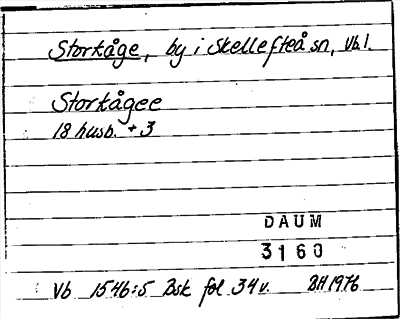 Storkåge, by i Skellefteå sn, Vb.l.
Storkågee
18 husb. + 3
DAUM
3160
Vb 1546:5 Bsk fol 34v. BH 1976